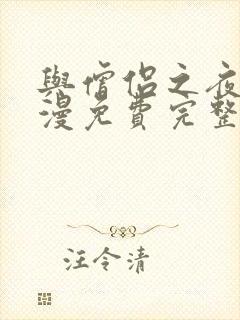 與僧侶之夜
漫免費完整
汪令清